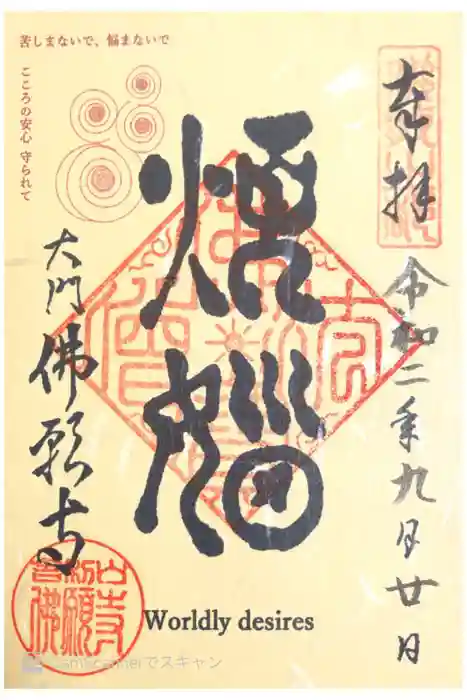 苦しまないで、悩まないで
こころの安心 守られて
奉拝
令和二年九月廿日
煩悩
大門 佛願寺
Worldly desires
CamScannerでスキャン